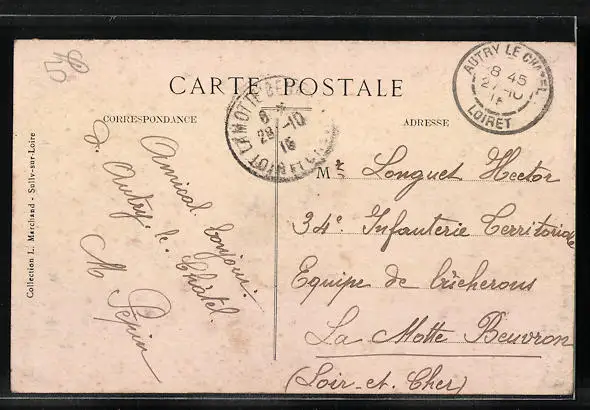 CARTE POSTALE
CORRESPONDANCE
ADRESSE
AUTRY LE CHATEL
8 45
27-10
15
LOIRET
LAMOTTE BE
28-10
15
LOIR ET C
Collection L. Marchand - Sully-sur-Loire
Amical bonjour
d'Autry-le-Châtel.
M Pépin
Mr Longuet Hector
34e Infanterie Territoriale
Equipe de bûcherons
La Motte Beuvron
(Loir-et-Cher)